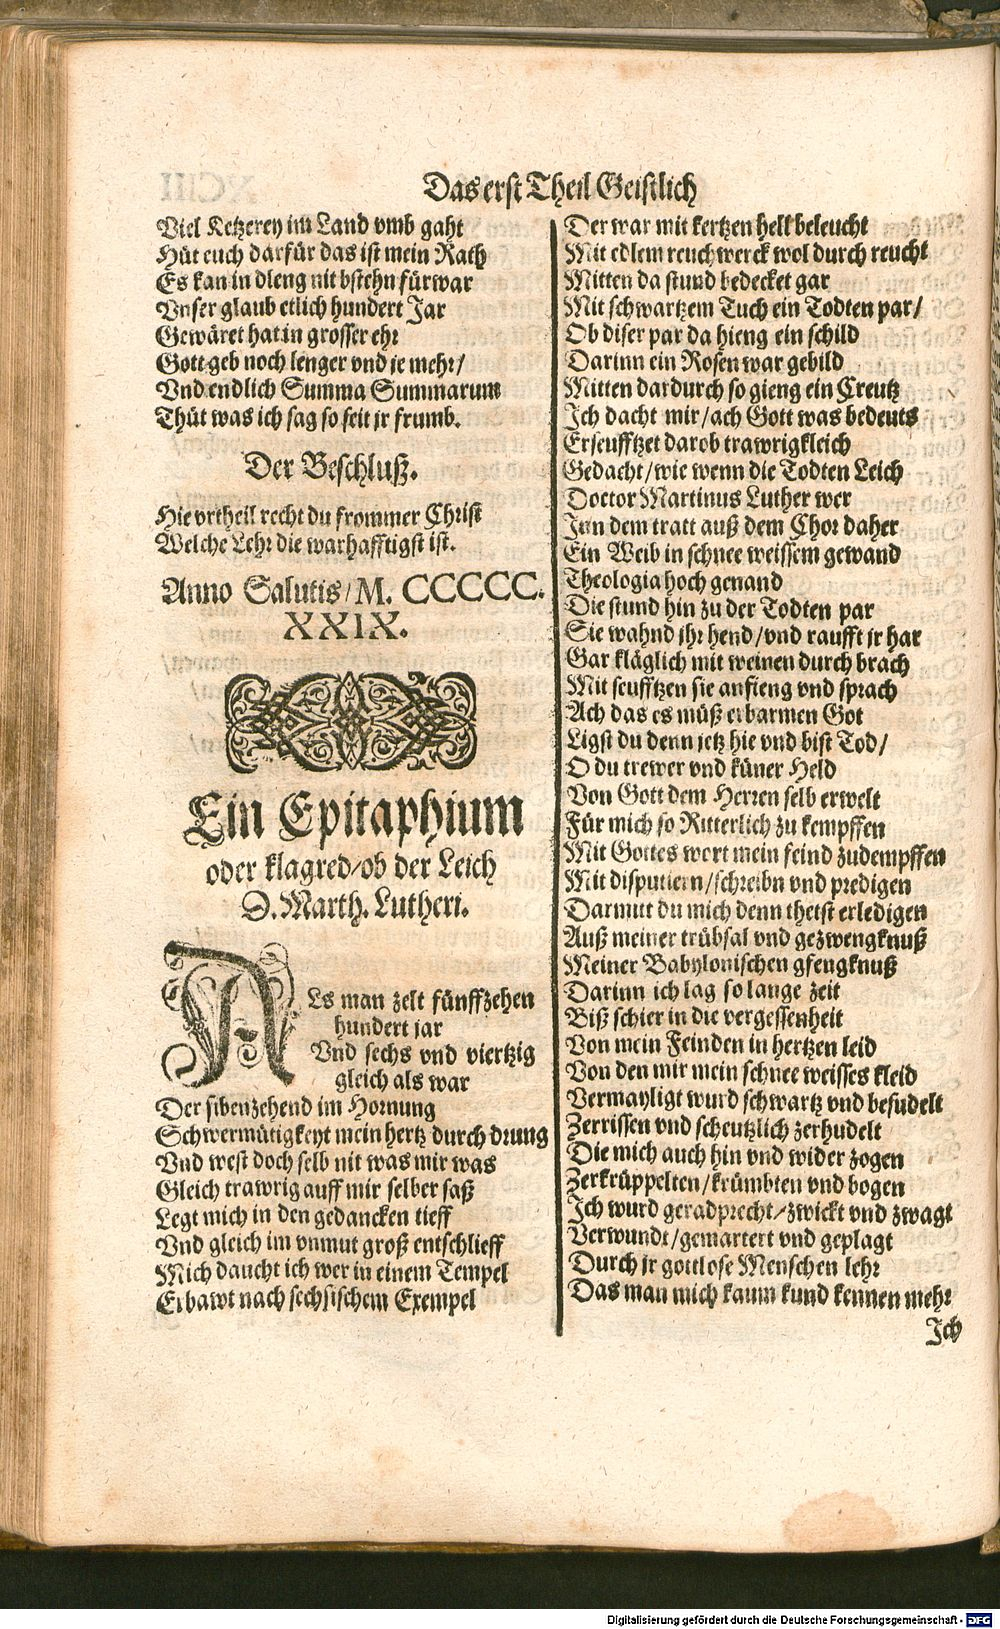 Das erst Theil Geistlich
Viel Ketzerey im Land vmb gaht
Hüt euch darfür das ist mein Rath
Es kan in dleng nit bstehn fürwar
Vnser glaub etlich hundert Jar
Gewäret hat in grosser ehr
Gott geb noch lenger vnd je mehr/
Vnd endlich Summa Summarum
Thüt was ich sag so seit jr frumb.
Der Beschluß.
Hie vrtheil recht du frommer Christ
Welche Lehr die warhafftigst ist.
Anno Salutis/M. CCCCC.
XXIX.
Ein Epitaphium
oder klagred/ob der Leich
D. Marth. Lutheri.
Als man zelt fünffzehen
hundert jar
Vnd sechs vnd viertzig
gleich als war
Der sibenzehend im Hornung
Schwermütigkeyt mein hertz durch drung
Vnd west doch selb nit was mir was
Gleich trawrig auff mir selber saß
Legt mich in den gedancken tieff
Vnd gleich im vnmut groß entschlieff
Mich daucht ich wer in einem Tempel
Erbawt nach sechsischem Exempel
Der war mit kertzen hell beleucht
Mit edlem reuchwerck wol durch reucht
Mitten da stund bedecket gar
Mit schwartzem Tuch ein Todten par/
Ob diser par da hieng ein schild
Darinn ein Rosen war gebild
Mitten dardurch so gieng ein Creutz
Ich dacht mir/ach Gott was bedeuts
Erseufftzet darob trawrigkleich
Gedacht/wie wenn die Todten Leich
Doctor Martinus Luther wer
Inn dem tratt auß dem Chor daher
Ein Weib in schnee weissem gewand
Theologia hoch genand
Die stund hin zu der Todten par
Sie wahnd jhr hend/vnd raufft jr har
Gar kläglich mit weinen durch brach
Mit seufftzen sie anfieng vnd sprach
Ach das es müß erbarmen Got
Ligst du denn jetz hie vnd bist Tod/
O du trewer vnd küner Held
Von Gott dem Herren selb erwelt
Für mich so Ritterlich zu kempffen
Mit Gottes wort mein feind zudempffen
Mit disputiern/schreibn vnd predigen
Darmitt du mich denn thetst erledigen
Auß meiner trübsal vnd gezwengknuß
Meiner Babylonischen gfengknuß
Darinn ich lag so lange zeit
Biß schier in die vergessenheit
Von mein Feinden in hertzen leid
Von den mir mein schnee weisses kleid
Vermayligt wurd schwartz vnd besudelt
Zerrissen vnd scheutzlich zerhudelt
Die mich auch hin vnd wider zogen
Zerkrüppelten/krümbten vnd bogen
Ich wurd geradprecht/zwickt vnd zwagt
Verwundt/gemartert vnd geplagt
Durch jr gottlose Menschen lehr
Das man mich kaum kund kennen mehr
Ich
Digitalisierung gefördert durch die Deutsche Forschungsgemeinschaft - DFG